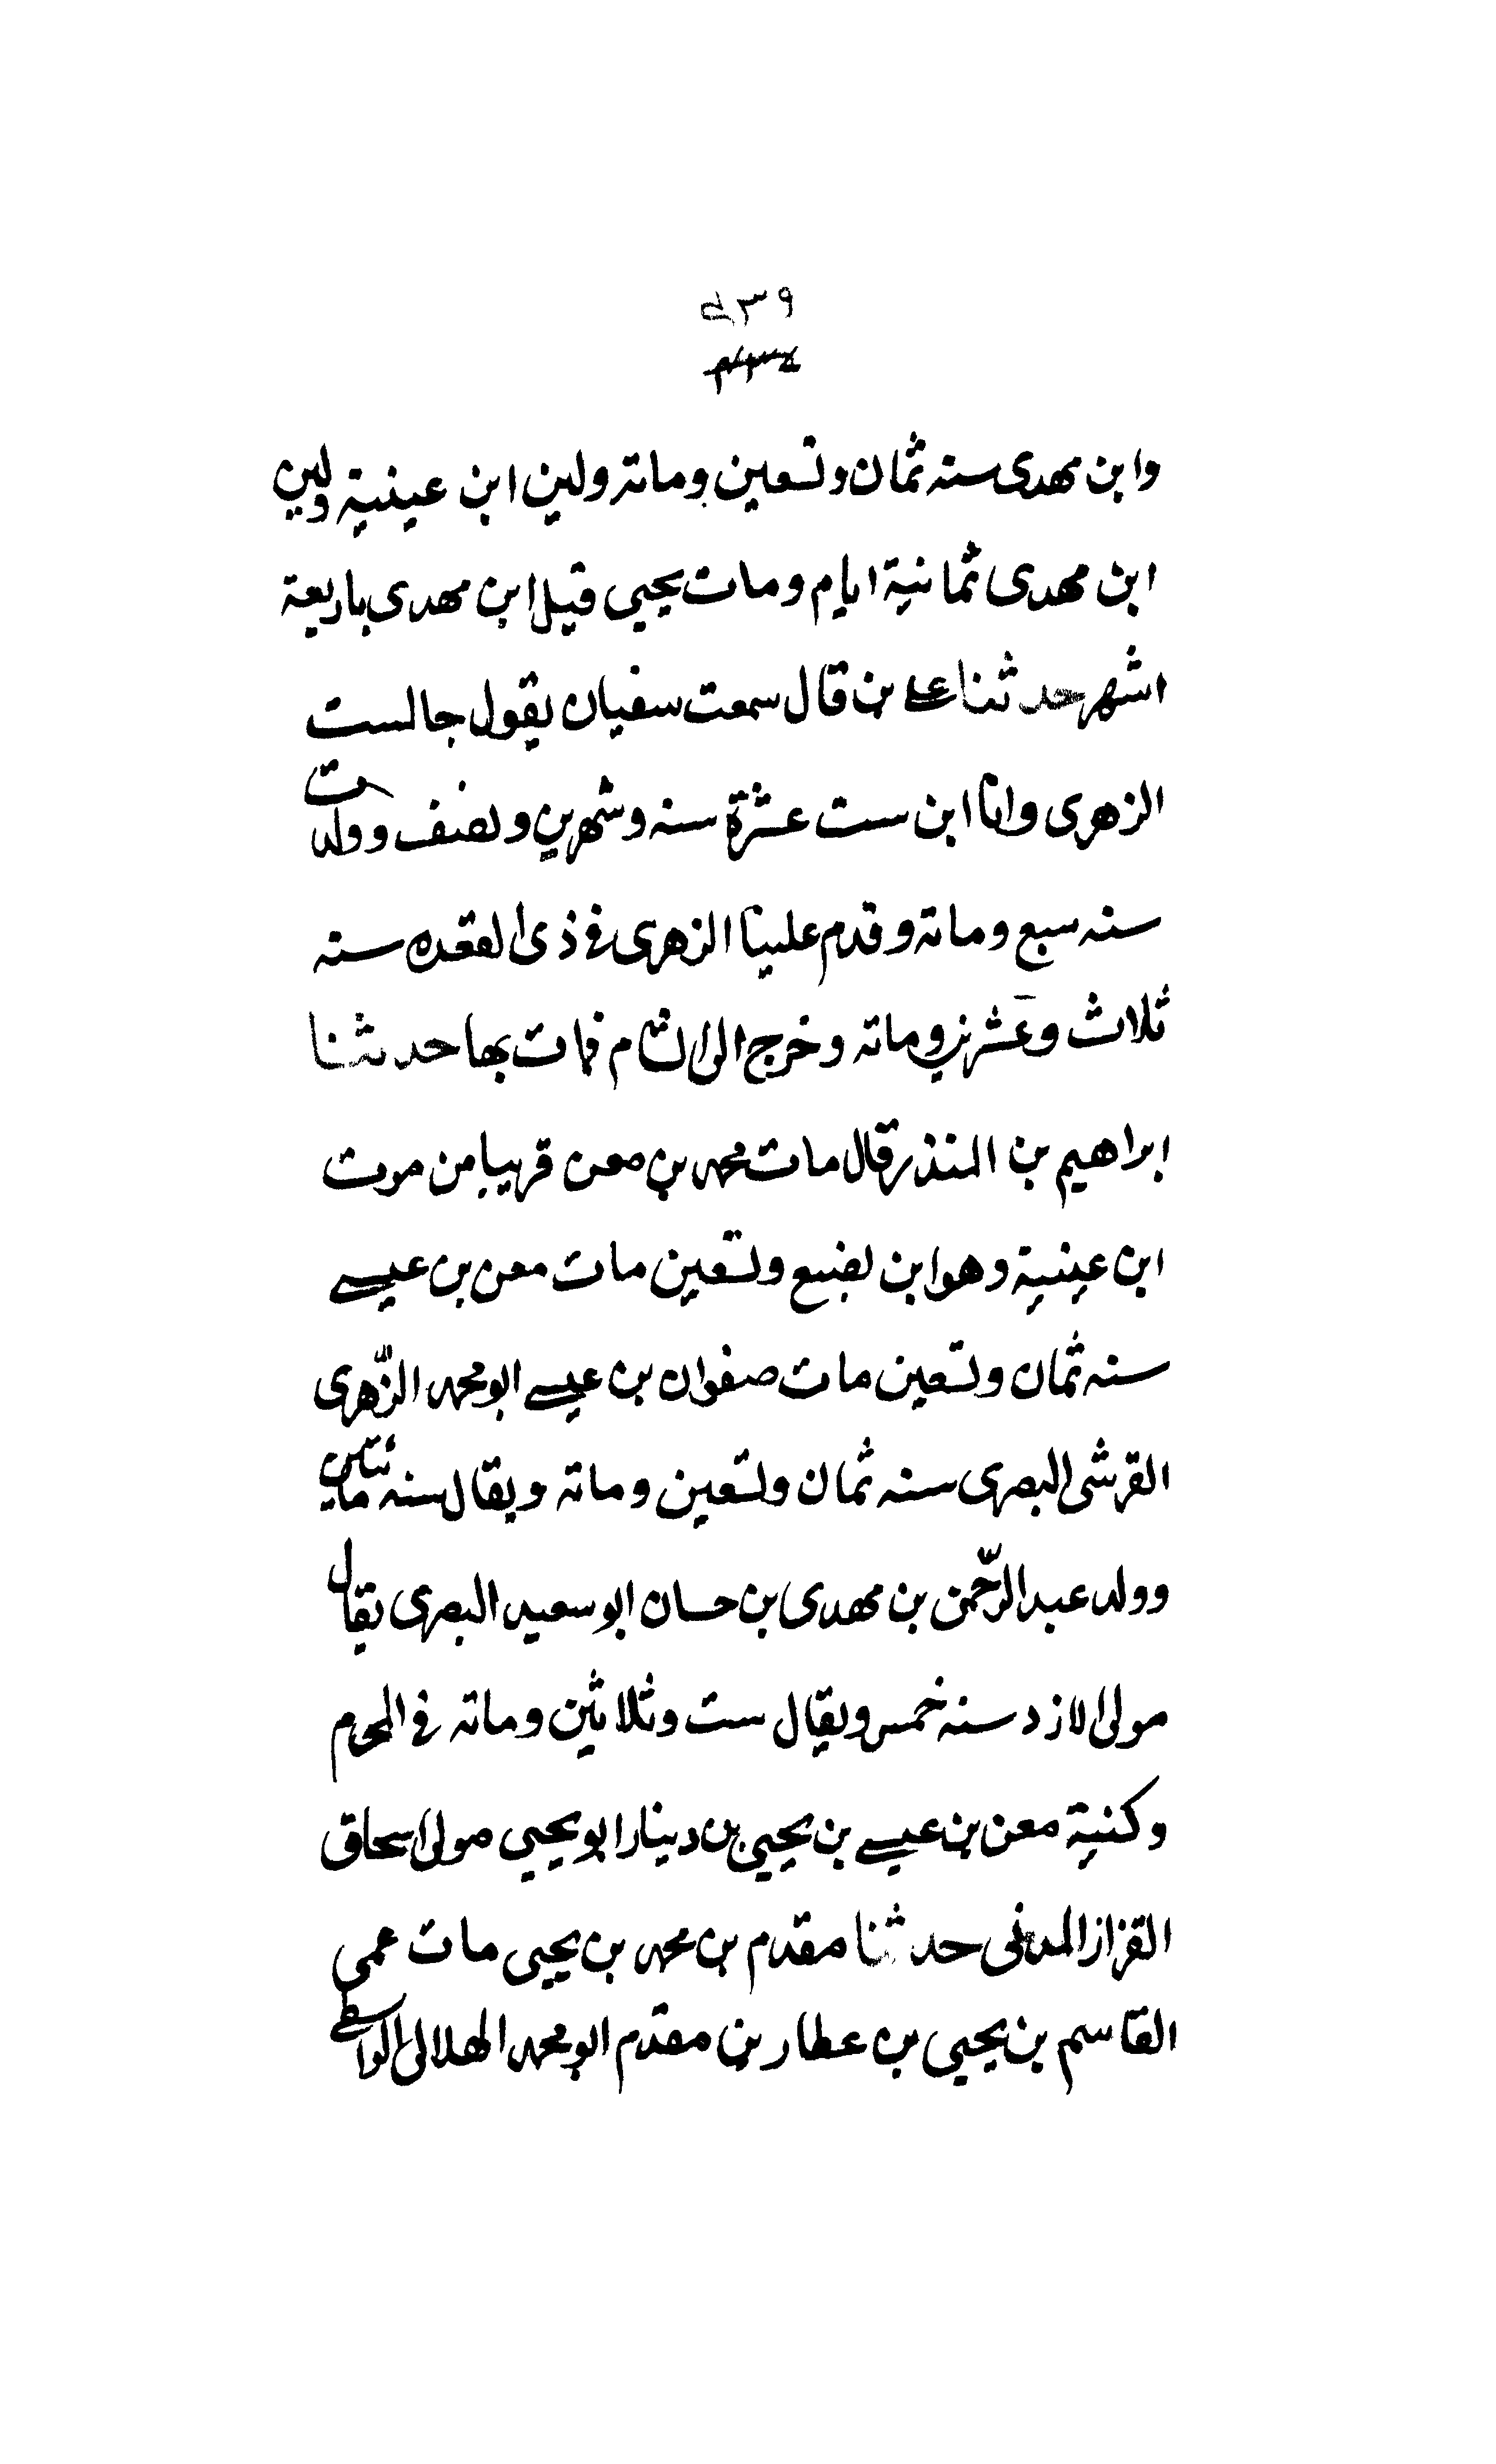 ٤٣٩
٤٣٤
وابن مهدى سنه ثمان وتسعين ومائة وليس ابن عيينة وليس
ابن مهدى ثمانية ايام ومات يحيى قبل ابن مهدى باربعة
اشهر حدثنا على بن قال سمعت سفيان يقول جالست
الزهرى وانا ابن ست عشرة سنه وشهرين ونصف وولدت
سنه سبع ومائة وقدم علينا الزهرى فى ذى القعده سنه
ثلاث وعشرين ومائه وخرج الى الشام فمات بها حدثنا
ابراهيم بن المنذر قال مات محمد بن معن قريبا من موت
ابن عيينة وهو ابن بضع وتسعين مات معن بن عيسے
سنه ثمان وتسعين مات صفوان بن عيسے ابو محمد الزّهرى
القرشى البصرى سنه ثمان وتسعين ومائه ويقال سنه مائتين
وولد عبد الرّحمن بن مهدى بن حسان ابو سعيد البصرى يقال
مولى الازد سنه خمس ويقال ست وثلاثين ومائه فى المحرم
وكنية معن بن عيسے بن يحيى بن دينار ابو يحيى مولى اسحاق
القزاز المدنى حدثنا مقدم بن محمد بن يحيى مات عمى
القاسم بن يحيى بن عطار بن مقدم ابو محمد الهلالى الواسطے